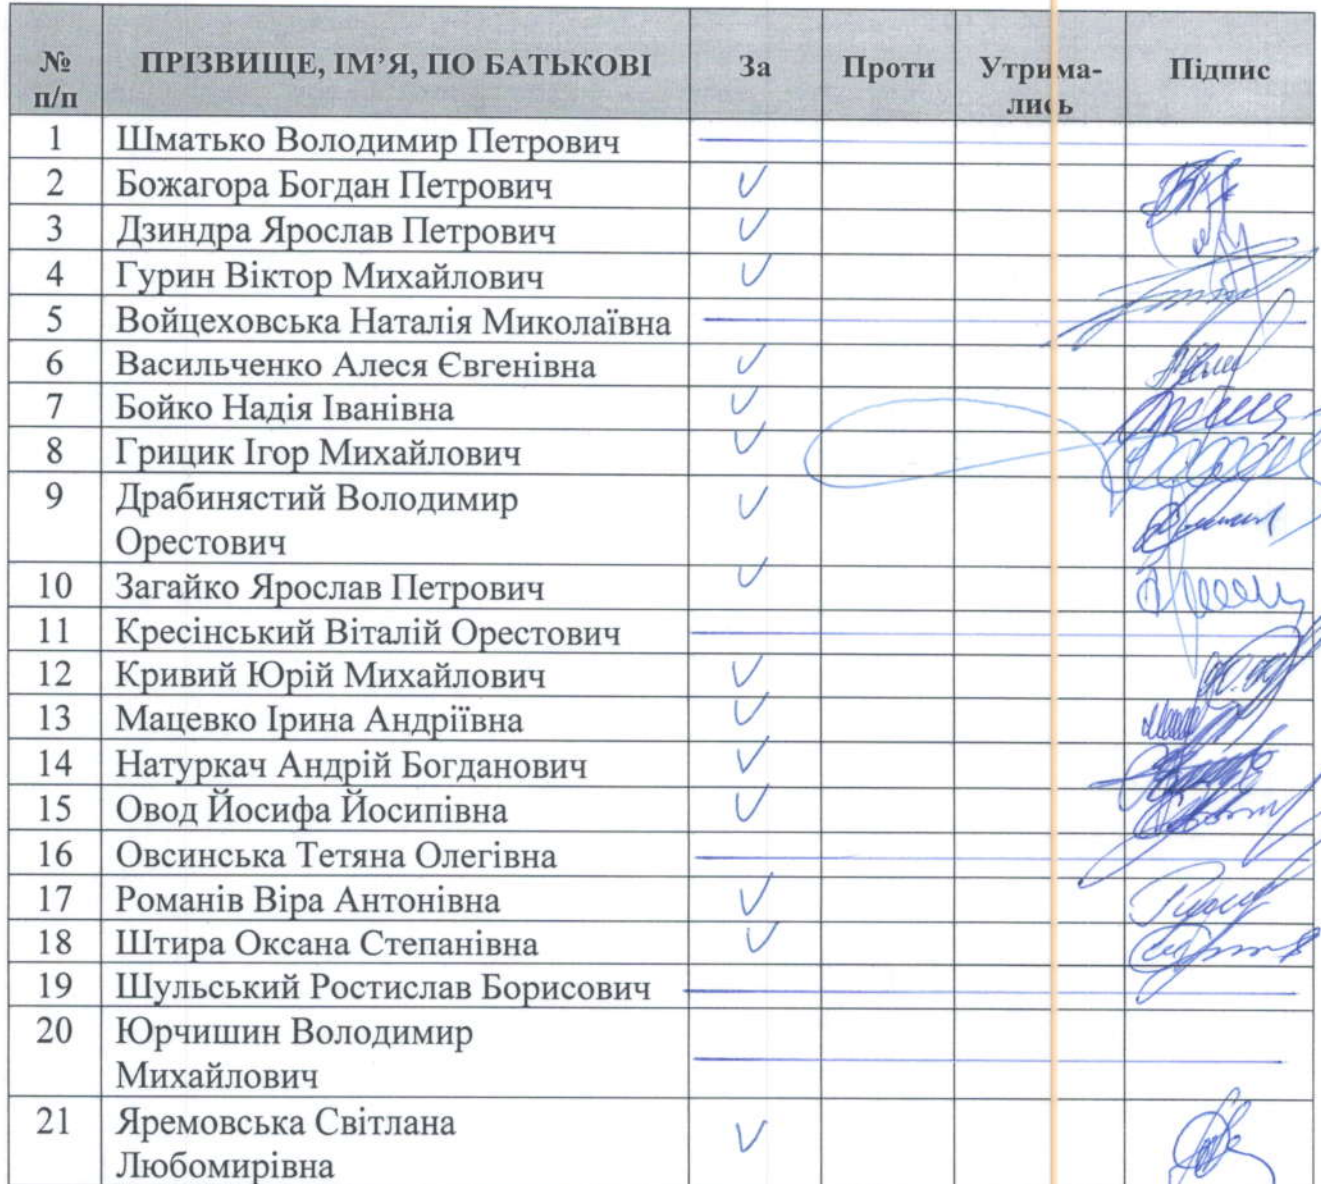 № ПРІЗВИЩЕ, ІМ’Я, ПО БАТЬКОВІ За Проти Утрима- Підпис
п/п лись
1 Шматько Володимир Петрович
2 Божагора Богдан Петрович
3 Дзиндра Ярослав Петрович
4 Гурин Віктор Михайлович
5 Войцеховська Наталія Миколаївна
6 Васильченко Алеся Євгенівна
7 Бойко Надія Іванівна
8 Грицик Ігор Михайлович
9 Драбинястий Володимир
Орестович
10 Загайко Ярослав Петрович
11 Кресінський Віталій Орестович
12 Кривий Юрій Михайлович
13 Мацевко Ірина Андріївна
14 Натуркач Андрій Богданович
15 Овод Йосифа Йосипівна
16 Овсинська Тетяна Олегівна
17 Романів Віра Антонівна
18 Штира Оксана Степанівна
19 Шульський Ростислав Борисович
20 Юрчишин Володимир
Михайлович
21 Яремовська Світлана
Любомирівна